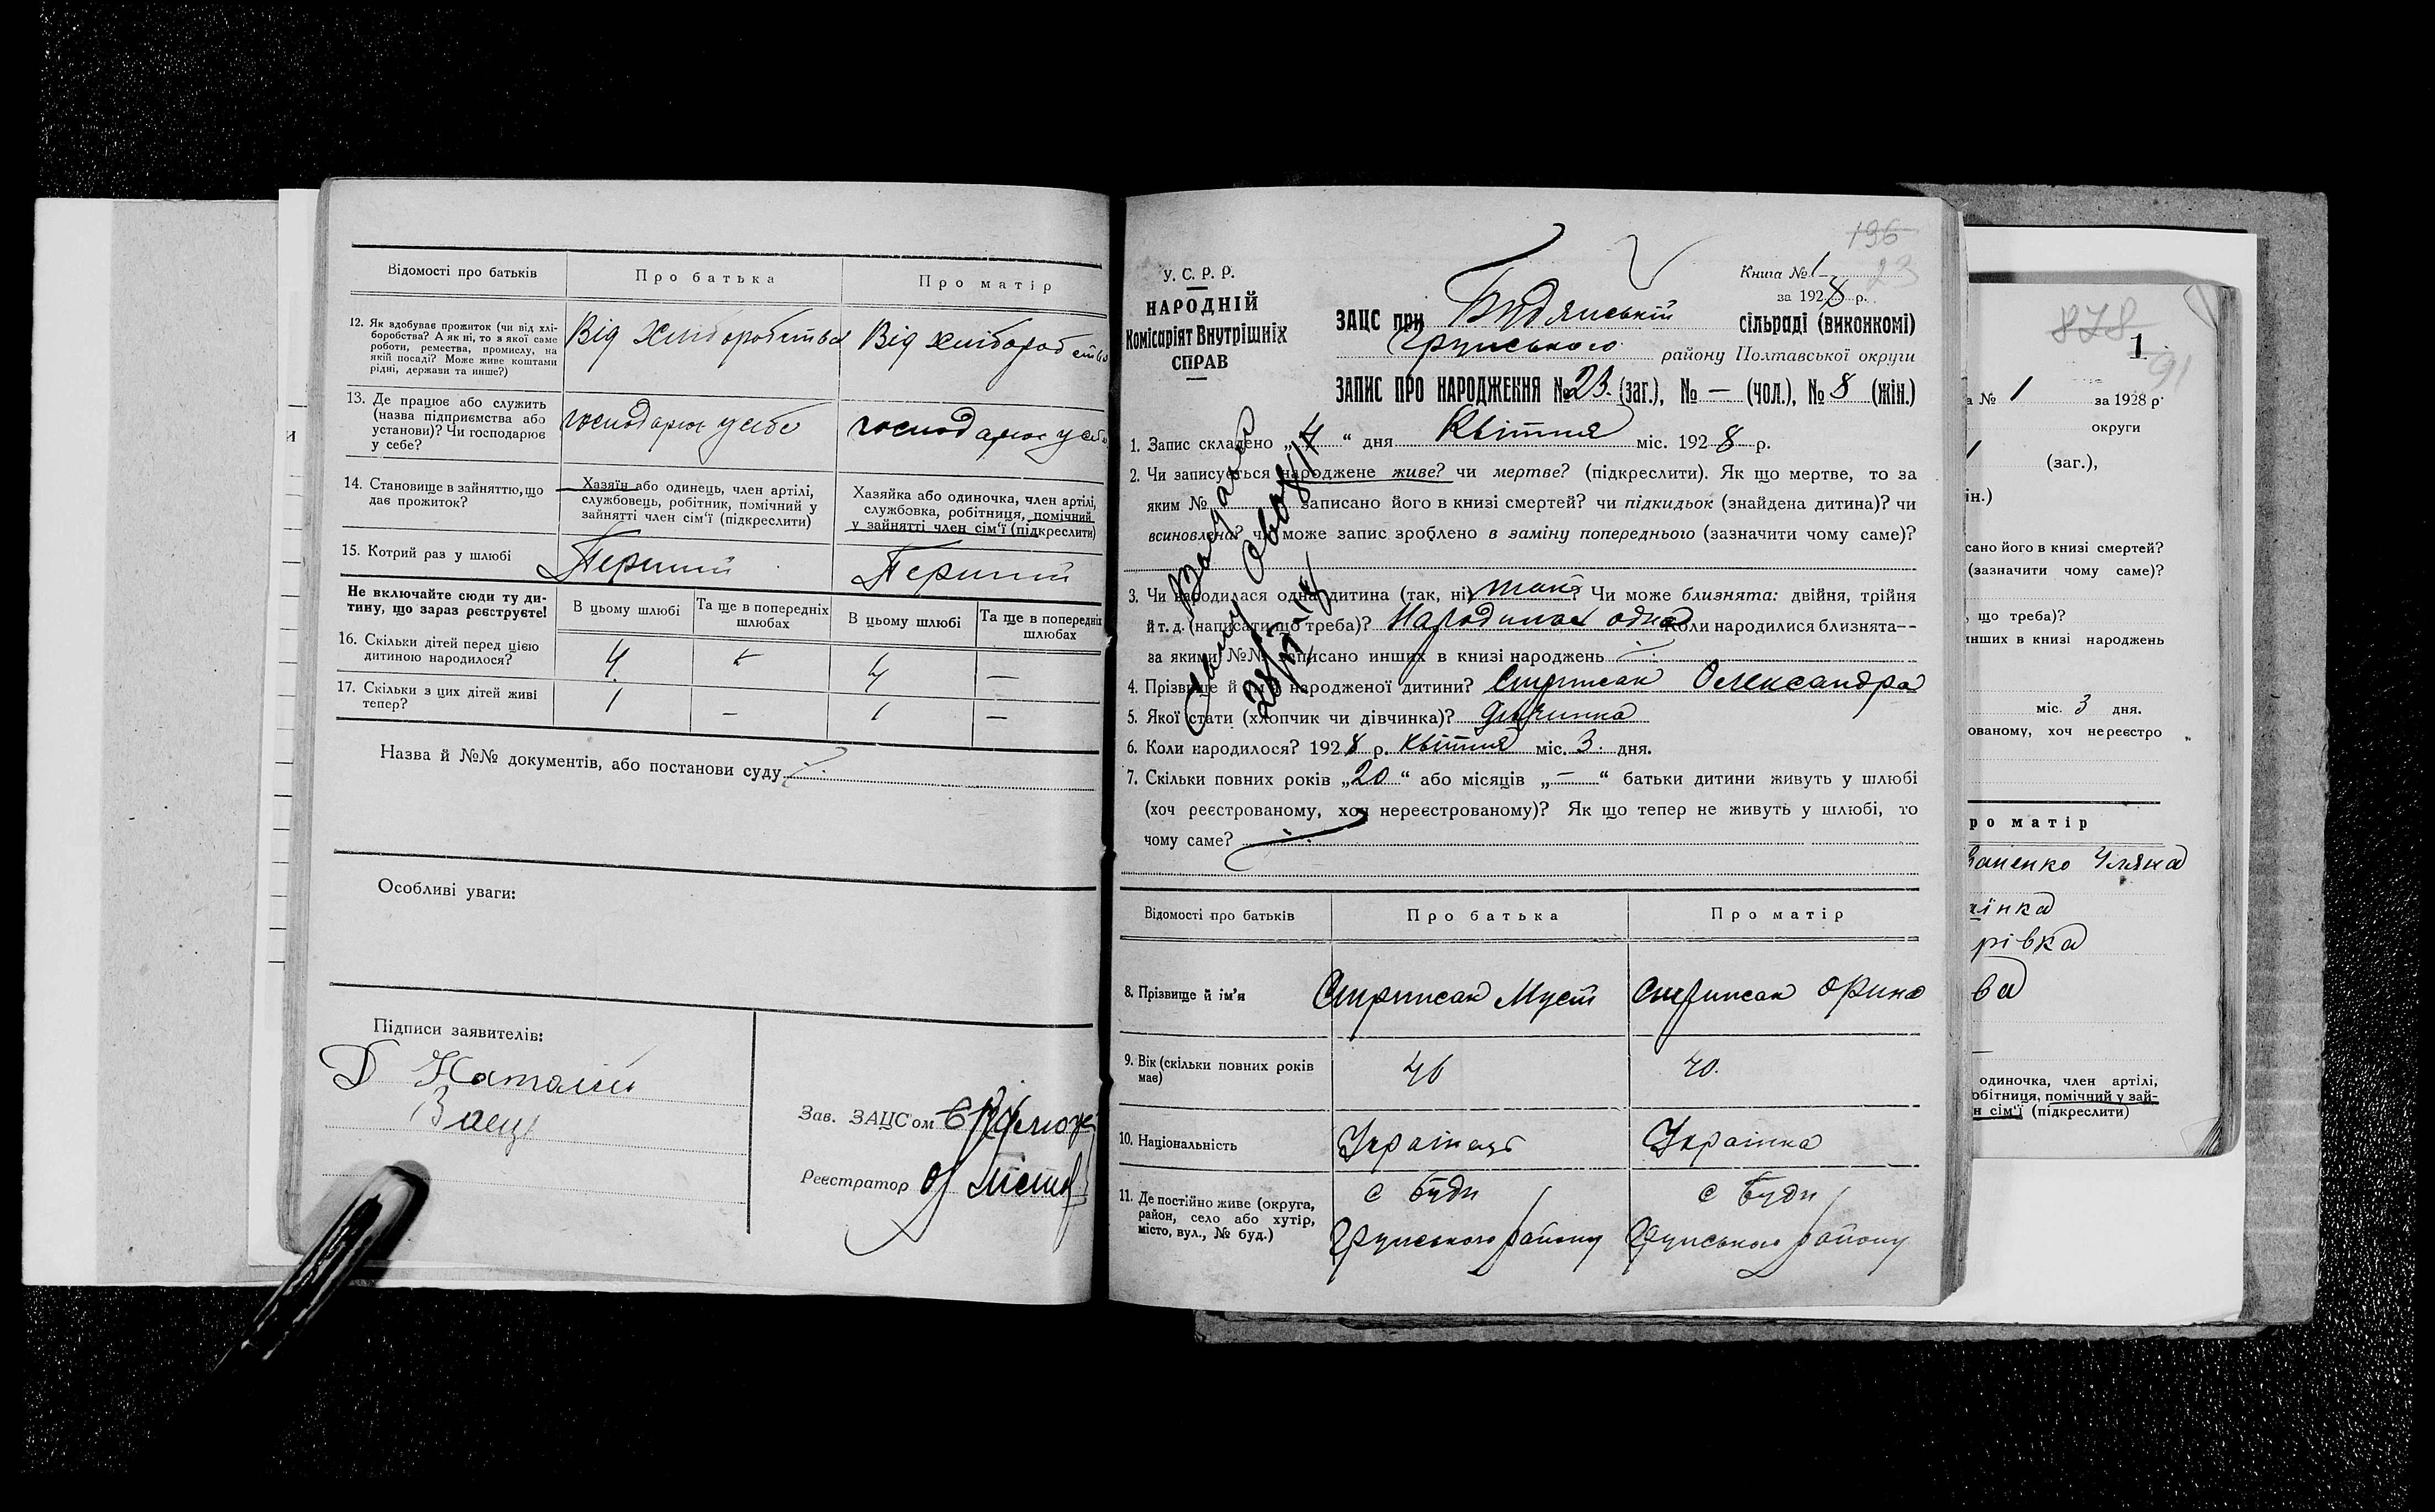 Відомості про батьків
Про батька
Про матір
12. Як здобуває прожиток (чи від хлі-
боробства? А як ні, то з якої саме
роботи, ремества, промислу, на
якій посаді? Може живе коштами
рідні, держави та инше?)
Від хліборобства
Від хліборобства
13. Де працює або служить
(назва підприємства або
установи)? Чи господарює
у себе?
господарює у себе
господарює у себе
14. Становище в зайняттю, що
дає прожиток?
Хазяїн або одинець, член артілі,
службовець, робітник, помічний у
зайнятті член сім'ї (підкреслити)
Хазяйка або одиночка, член артілі,
службовка, робітниця, помічний
у зайнятті член сім'ї (підкреслити)
15. Котрий раз у шлюбі
Перший
Перший
Не включайте сюди ту ди-
тину, що зараз реєструєте!
В цьому шлюбі
Та ще в попередніх
шлюбах
В цьому шлюбі
Та ще в попередніх
шлюбах
16. Скільки дітей перед цією
дитиною народилося?
4
4
—
17. Скільки з цих дітей живі
тепер?
1
—
1
—
Назва й №№ документів, або постанови суду
Особливі уваги:
Підписи заявителів:
Д Наталій
Заєць
Зав. ЗАЦС'ом
Реєстратор
196
23
У. С. Р. Р.
НАРОДНІЙ
Комісаріят Внутрішніх
СПРАВ
Книга № 1
за 1928 р.
ЗАЦС при Будянській сільраді (виконкомі)
Грунського району Полтавської округи
ЗАПИС ПРО НАРОДЖЕННЯ № 23. (заг.), № — (чол.), № 8 (жін.)
1. Запис складено „4“ дня Квітня міс. 1928 р.
2. Чи записується народжене живе? чи мертве? (підкреслити). Як що мертве, то за
яким № записано його в книзі смертей? чи підкидьок (знайдена дитина)? чи
всиновлена? чи може запис зроблено в заміну попереднього (зазначити чому саме)?
3. Чи народилася одна дитина (так, ні) так? Чи може близнята: двійня, трійня
й т. д. (написати що треба)? Народилась одна Коли народилися близнята--
за якими №№ записано инших в книзі народжень
4. Прізвище й ім'я народженої дитини? Олександра
5. Якої стати (хлопчик чи дівчинка)? дівчинка
6. Коли народилося? 1928 р. квітня міс. 3. дня.
7. Скільки повних років „20“ або місяців „—“ батьки дитини живуть у шлюбі
(хоч реєстрованому, хоч нереєстрованому)? Як що тепер не живуть у шлюбі, то
чому саме?
Відомості про батьків
Про батька
Про матір
8. Прізвище й ім'я
Орина
9. Вік (скільки повних років
має)
46
40.
10. Національність
Українець
Українка
11. Де постійно живе (округа,
район, село або хутір,
місто, вул., № буд.)
с Буди
Грунського району
с Буди
Грунського району
878
1
91
а № 1 за 1928 р.
округи
(заг.),
ін.)
сано його в книзі смертей?
(зазначити чому саме)?
, що треба)?
инших в книзі народжень
міс. 3 дня.
ованому, хоч нереєстро
ро матір
Уляна
їнка
рівка
ва
одиночка, член артілі,
обітниця, помічний у зай-
н сім'ї (підкреслити)